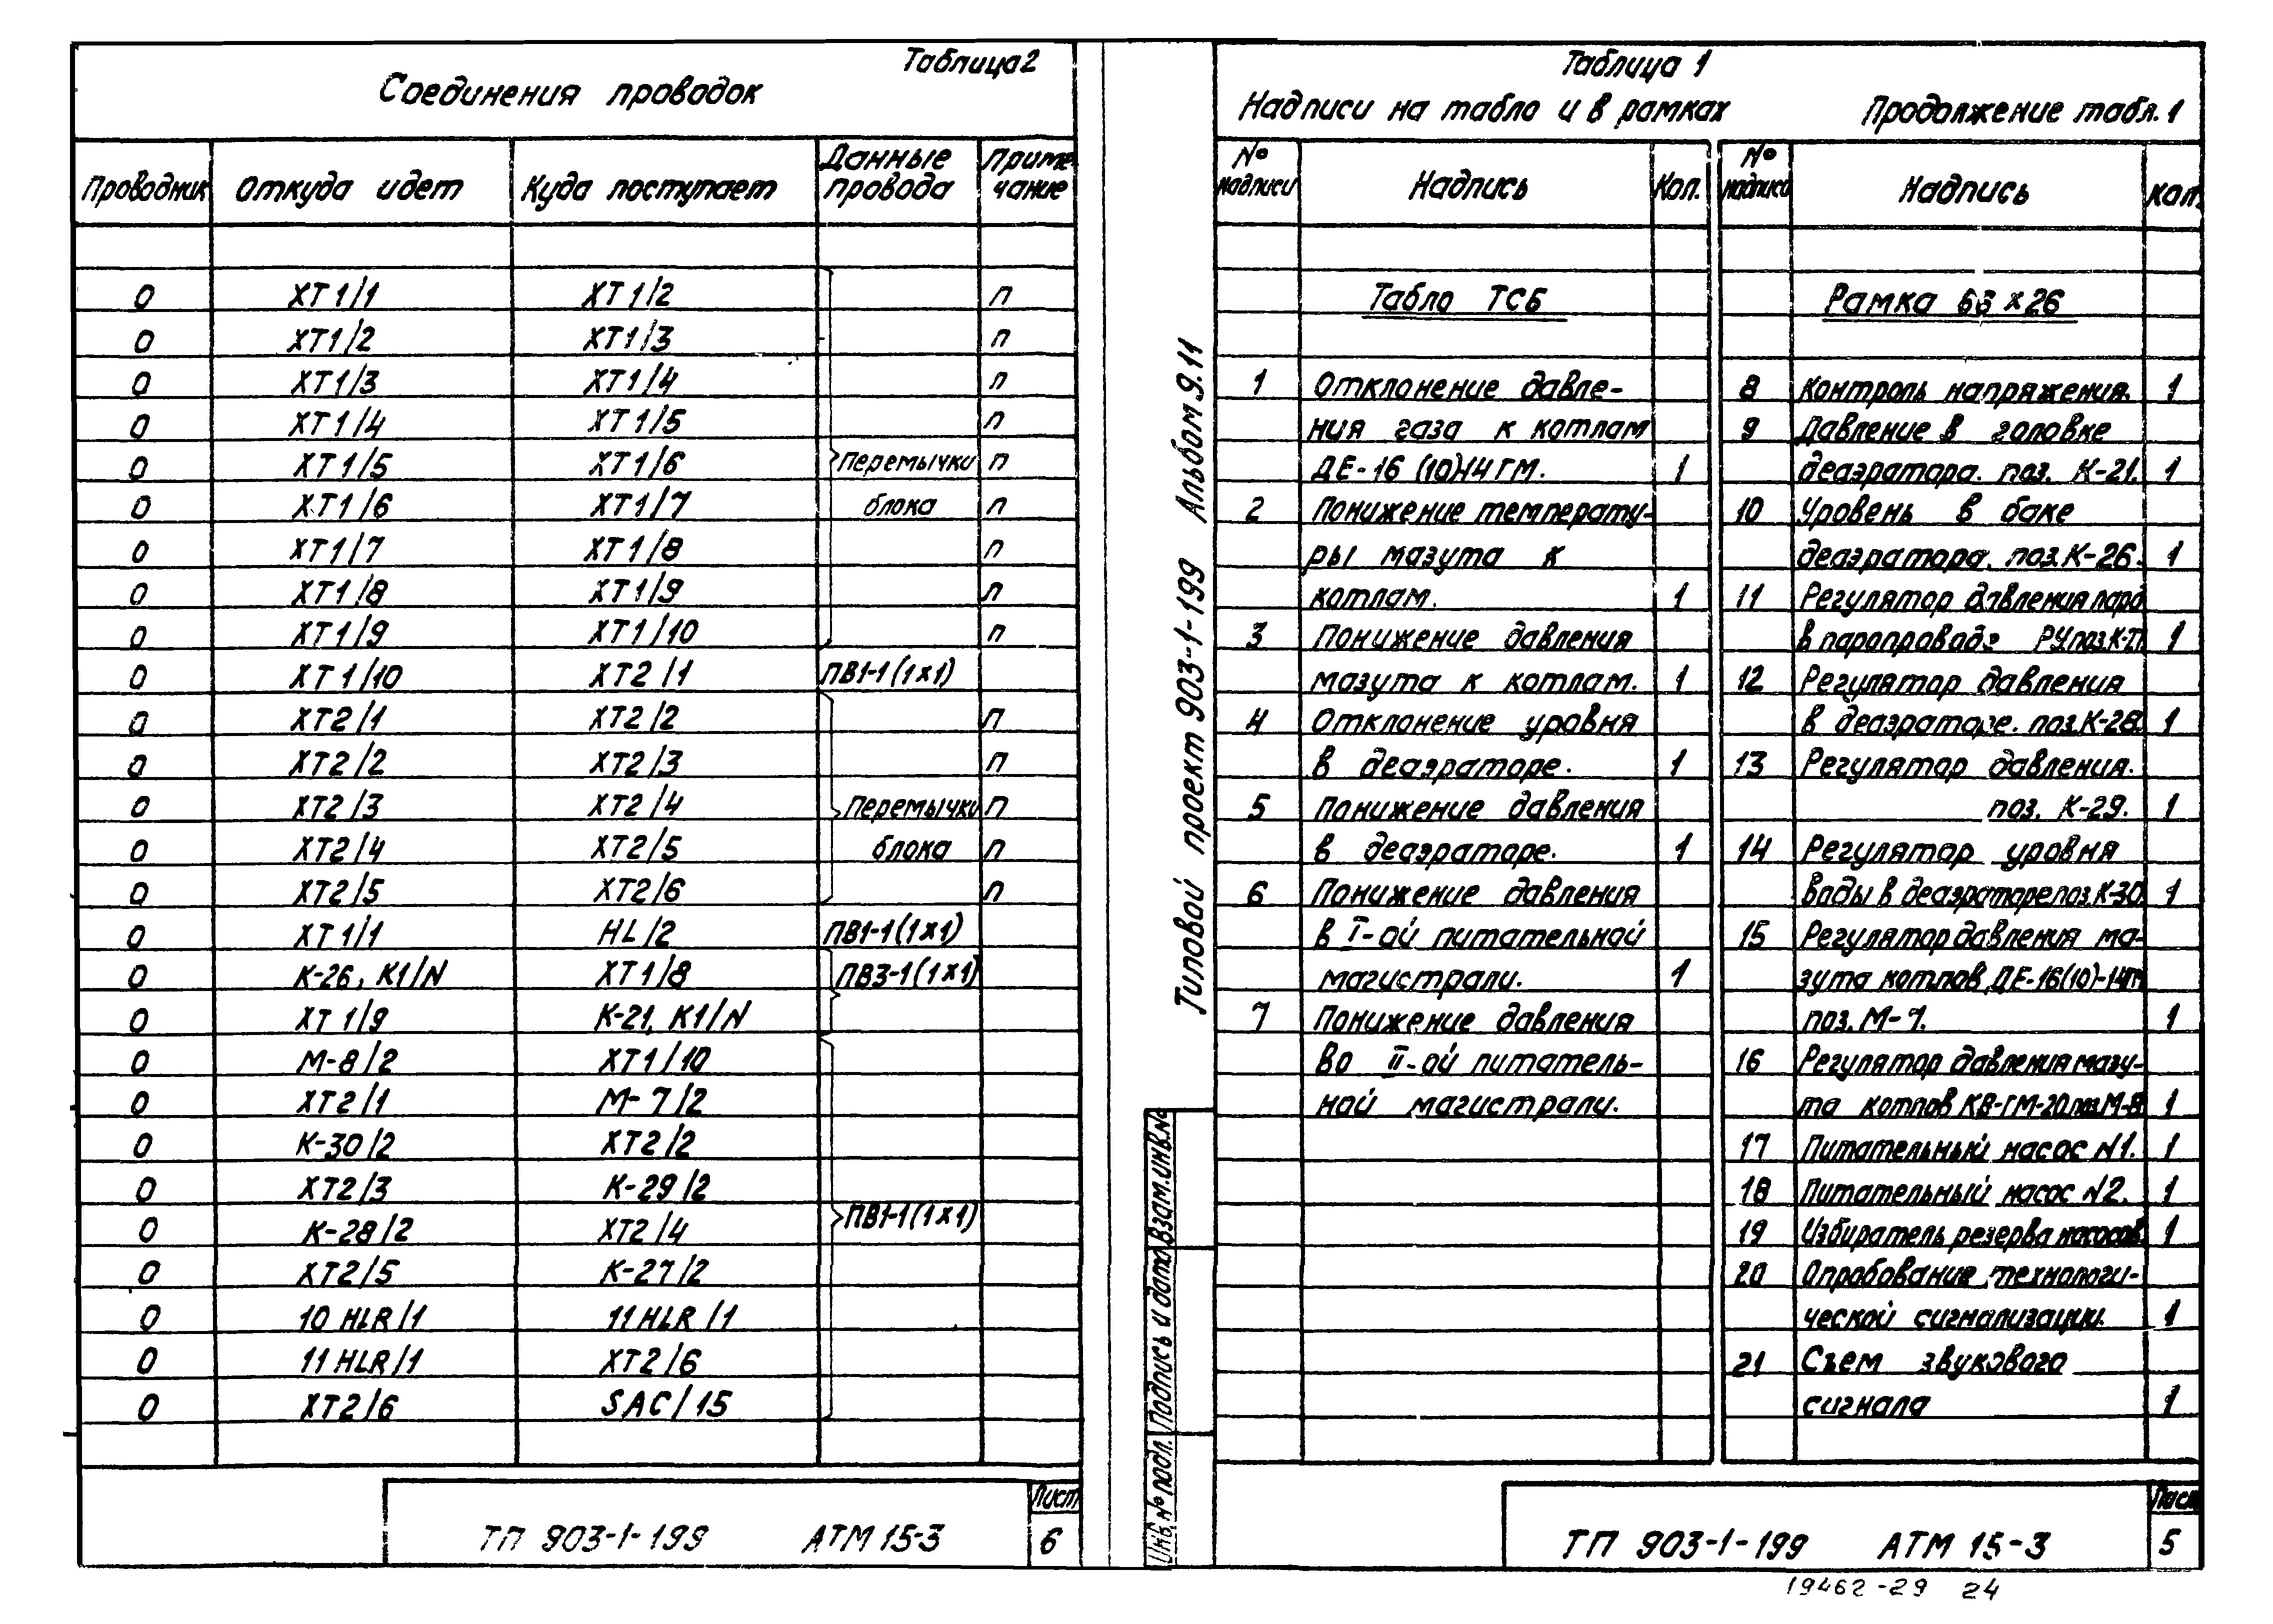 Таблица 2
Соединения проводок
Проводник Откуда идет Куда поступает Данные провода Приме-чание
0 XT1/1 XT1/2 п
0 XT1/2 XT1/3 п
0 XT1/3 XT1/4 п
0 XT1/4 XT1/5 п
0 XT1/5 XT1/6 Перемычки п
0 XT1/6 XT1/7 блока п
0 XT1/7 XT1/8 п
0 XT1/8 XT1/9 п
0 XT1/9 XT1/10 п
0 XT1/10 XT2/1 ПВ1-1(1х1)
0 XT2/1 XT2/2 п
0 XT2/2 XT2/3 п
0 XT2/3 XT2/4 Перемычки п
0 XT2/4 XT2/5 блока п
0 XT2/5 XT2/6 п
0 XT1/1 HL/2 ПВ1-1(1х1)
0 К-26, К1/N XT1/8 ПВ3-1(1х1)
0 XT1/9 К-21, К1/N
0 М-8/2 XT1/10
0 XT2/1 М-7/2
0 К-30/2 XT2/2
0 XT2/3 К-29/2
0 К-28/2 XT2/4 ПВ1-1(1х1)
0 XT2/5 К-27/2
0 10 HLR/1 11 HLR/1
0 11 HLR/1 XT2/6
0 XT2/6 SAC/15
ТП 903-1-199 АТМ 15-3
Лист
6
Типовой проект 903-1-199 Альбом 9.11
Инв.№ подл. Подпись и дата Взам.инв.№
Таблица 1
Надписи на табло и в рамках
Продолжение табл. 1
№ надписи Надпись Кол.
Табло ТСБ
1 Отклонение давле-
ния газа к котлам
ДЕ-16 (10)14 ГМ. 1
2 Понижение температу-
ры мазута к
котлам. 1
3 Понижение давления
мазута к котлам. 1
4 Отклонение уровня
в деаэраторе. 1
5 Понижение давления
в деаэраторе. 1
6 Понижение давления
в I-ой питательной
магистрали. 1
7 Понижение давления
во II-ой питатель-
ной магистрали.
№ надписи Надпись Кол.
Рамка 63 х 26
8 Контроль напряжения. 1
9 Давление в головке
деаэратора. поз. К-21. 1
10 Уровень в баке
деаэратора. поз. К-26. 1
11 Регулятор давления пара
в паропроводе РУ поз. К-27 1
12 Регулятор давления
в деаэраторе. поз. К-28. 1
13 Регулятор давления.
поз. К-29. 1
14 Регулятор уровня
воды в деаэраторе поз. К-30 1
15 Регулятор давления ма-
зута котлов ДЕ-16(10)-14ГМ
поз. М-7. 1
16 Регулятор давления мазу-
та котлов КВ-ГМ-20 поз. М-8 1
17 Питательный насос N1. 1
18 Питательный насос N2. 1
19 Избиратель резерва насосов. 1
20 Опробование технологи-
ческой сигнализации. 1
21 Съем звукового
сигнала 1
ТП 903-1-199 АТМ 15-3
Лист
5
19462-29 24